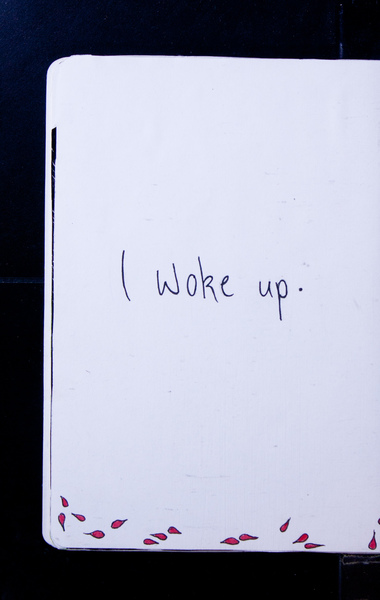 I woke up.